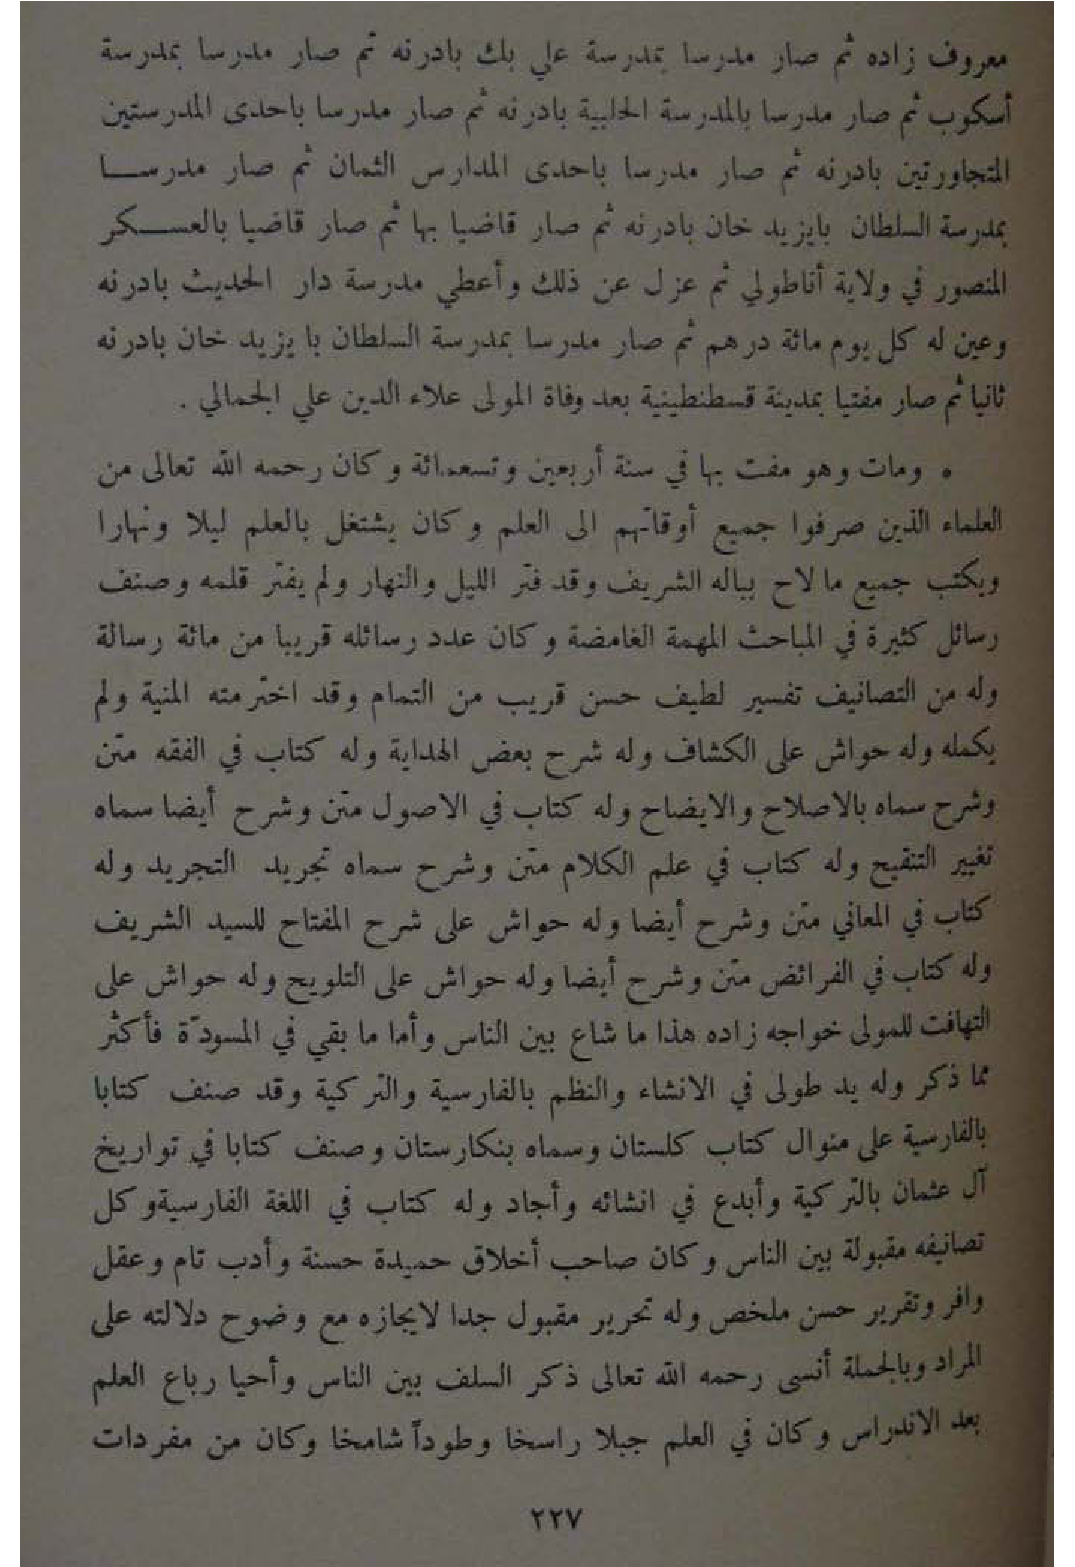 معروف زاده ثم صار مدرسا بمدرسة علي بك بادرنه ثم صار مدرسا بمدرسة
أسكوب ثم صار مدرسا بالمدرسة الحلبية بادرنه ثم صار مدرسا باحدى المدرستين
المتجاورتين بادرنه ثم صار مدرسا باحدى المدارس الثمان ثم صار مدرسا
بمدرسة السلطان بايزيد خان بادرنه ثم صار قاضيا بها ثم صار قاضيا بالعسكر
المنصور في ولاية أناطولي ثم عزل عن ذلك وأعطي مدرسة دار الحديث بادرنه
وعين له كل يوم مائة درهم ثم صار مدرسا بمدرسة السلطان بايزيد خان بادرنه
ثانيا ثم صار مفتيا بمدينة قسطنطينية بعد وفاة المولى علاء الدين علي الجمالي .
ه ومات وهو مفت بها في سنة أربعين وتسعمائة وكان رحمه الله تعالى من
العلماء الذين صرفوا جميع أوقاتهم الى العلم وكان يشتغل بالعلم ليلا ونهارا
ويكتب جميع ما لاح بباله الشريف وقد فتر الليل والنهار ولم يفتر قلمه وصنف
رسائل كثيرة في المباحث المهمة الغامضة وكان عدد رسائله قريبا من مائة رسالة
وله من التصانيف تفسير لطيف حسن قريب من التمام وقد اخترمته المنية ولم
يكمله وله حواش على الكشاف وله شرح بعض الهداية وله كتاب في الفقه متن
وشرح سماه بالاصلاح والايضاح وله كتاب في الاصول متن وشرح أيضا سماه
تغيير التنقيح وله كتاب في علم الكلام متن وشرح سماه تجريد التجريد وله
كتاب في المعاني متن وشرح أيضا وله حواش على شرح المفتاح للسيد الشريف
وله كتاب في الفرائض متن وشرح أيضا وله حواش على التلويح وله حواش على
التهافت للمولى خواجه زاده هذا ما شاع بين الناس وأما ما بقي في المسودّة فأكثر
مما ذكر وله يد طولى في الانشاء والنظم بالفارسية والتركية وقد صنف كتابا
بالفارسية على منوال كتاب كلستان وسماه بنكارستان وصنف كتابا في تواريخ
آل عثمان بالتركية وأبدع في انشائه وأجاد وله كتاب في اللغة الفارسية وكل
تصانيفه مقبولة بين الناس وكان صاحب أخلاق حميدة حسنة وأدب تام وعقل
وافر وتقرير حسن ملخص وله تحرير مقبول جدا لايجازه مع وضوح دلالته على
المراد وبالجملة أنسى رحمه الله تعالى ذكر السلف بين الناس وأحيا رباع العلم
بعد الاندراس وكان في العلم جبلا راسخا وطوداً شامخا وكان من مفردات
٢٢٧